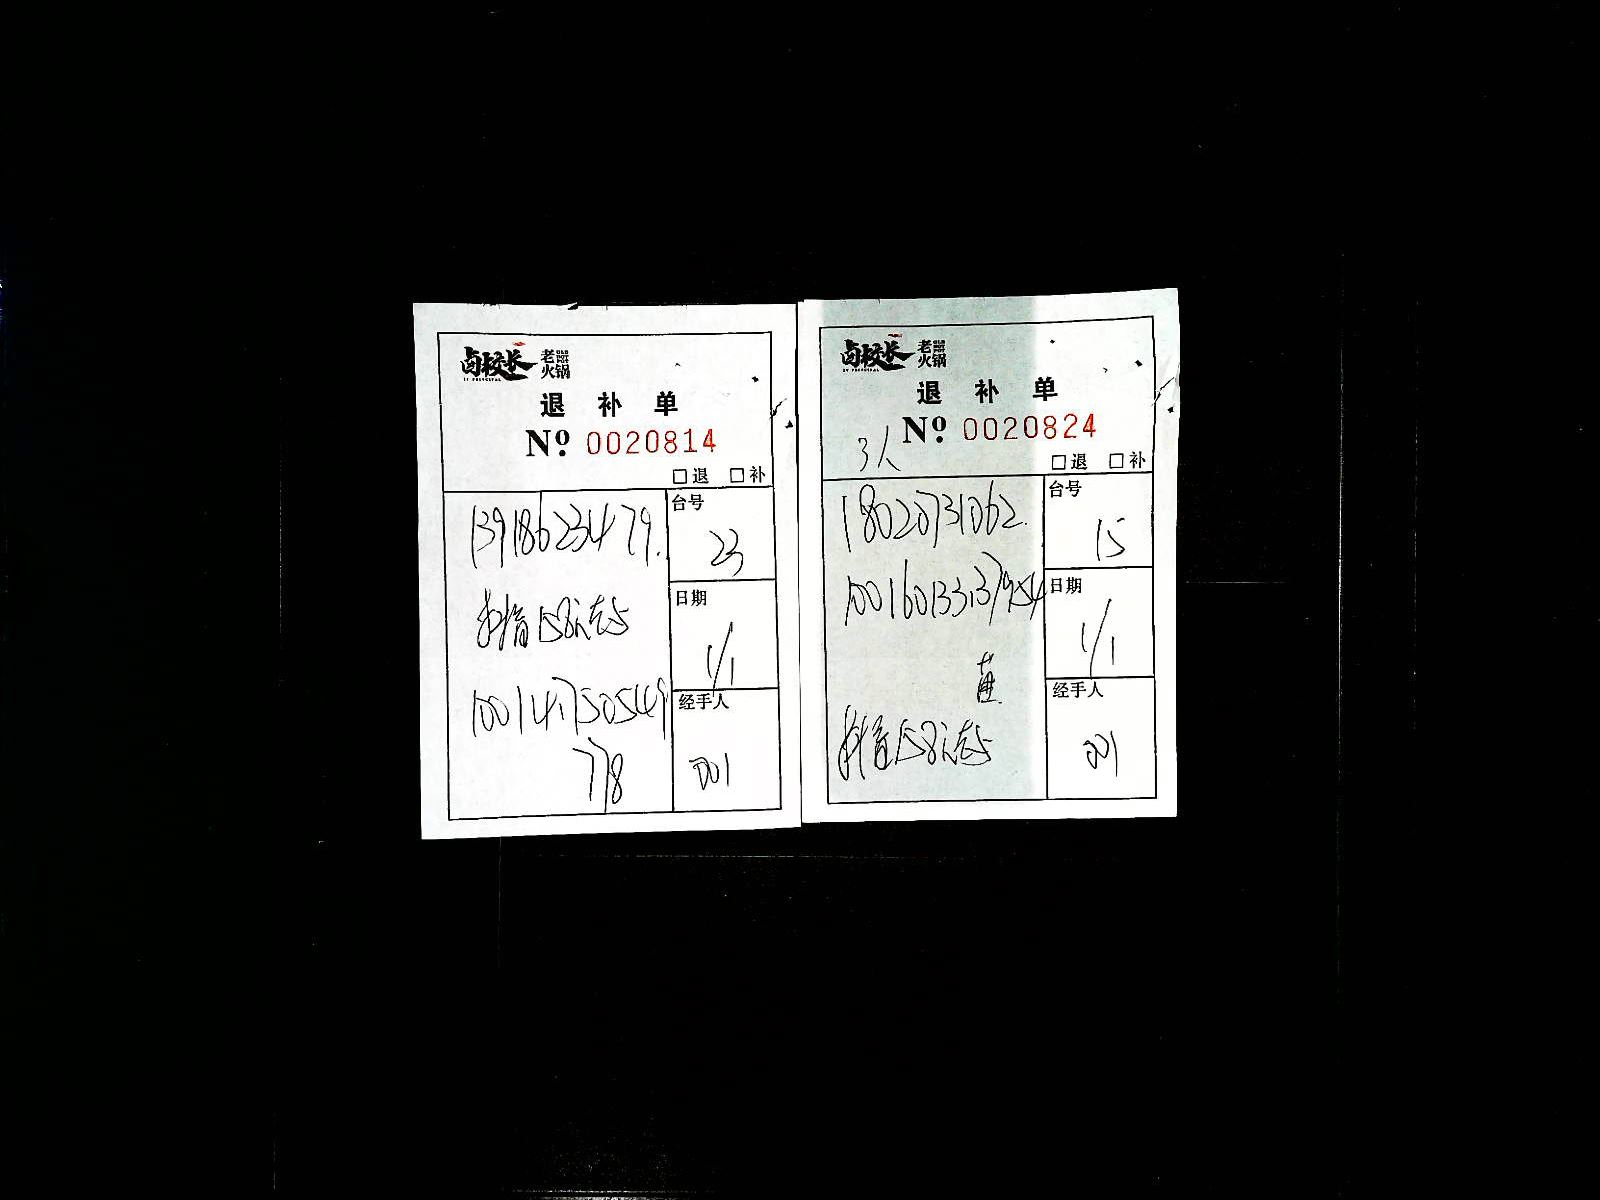 卤校长 老火锅
退 补 单
№ 0020814
□退 □补
13918623479.
台号
23
抖音158元套
日期
1/1
100141750549
778
经手人
001
卤校长 老火锅
退 补 单
№ 0020824
3人
□退 □补
18020731062.
台号
15
日期
1/1
经手人
001
抖音158元套